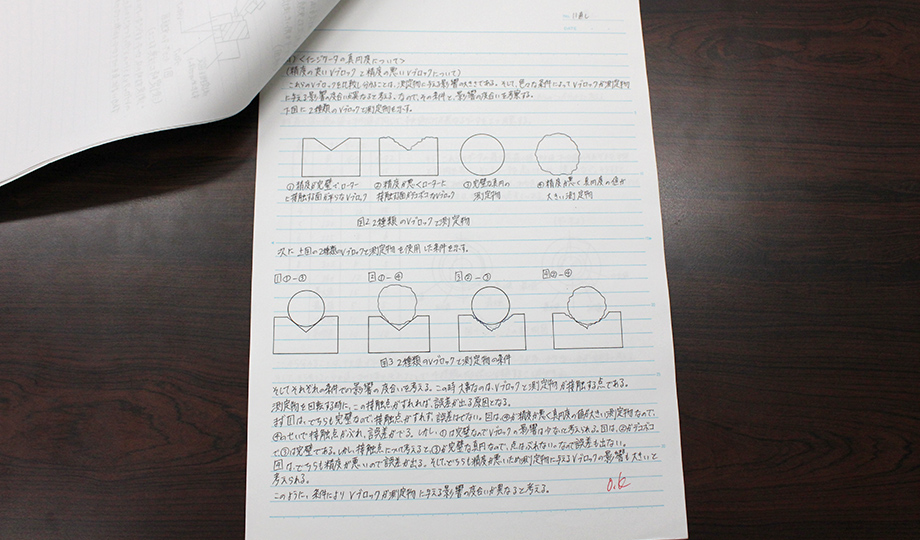 (精度の良いVブロックと精度の悪いVブロックについて)
これらのVブロックを比較し分かることは、測定物に与える影響の大きさである。そして、色々な条件によってVブロックが測定物
に与える影響の度合いが異なると考える。なので、その条件と、影響の度合いを考察する。
下図に2種類のVブロックと測定物を示す。
①精度が完璧で、ローラー
と接触する面が平らなVブロック
②精度が悪くローラーと
接触する面がデコボコなVブロック
③完璧な真円の
測定物
④精度が悪く真円度の値が
大きい測定物
図2 2種類のVブロックと測定物
次に上図の2種類のVブロックと測定物を使用した条件を示す。
1 ①-③
2 ①-④
3 ②-③
4 ②-④
図3 2種類のVブロックと測定物の条件
そしてそれぞれの条件での影響の度合いを考える。この時大事なのは、Vブロックと測定物が接触する点である。
測定物を回転する時に、この接触点がずれれば、誤差が出る原因となる。
まず1は、どちらも完璧なので、接触点がずれず、誤差はでない。2は、④が精度が悪く真円度の値が大きい測定物なので、
④のせいで接触点がぶれ、誤差がでる。しかし、①は完璧なのでVブロックの影響は少ないと考えられる。3は、②がデコボコ
で③は完璧である。しかし、接触点について考えると③が完璧な真円なので、点はぶれない。なので誤差も出ない。
4は、どちらも精度が悪いので誤差が出る。そして、どちらも精度が悪いため測定物に与えるVブロックの影響も大きいと
考えられる。
このように、条件によりVブロックが測定物に与える影響の度合いが異なると考える。
O.K